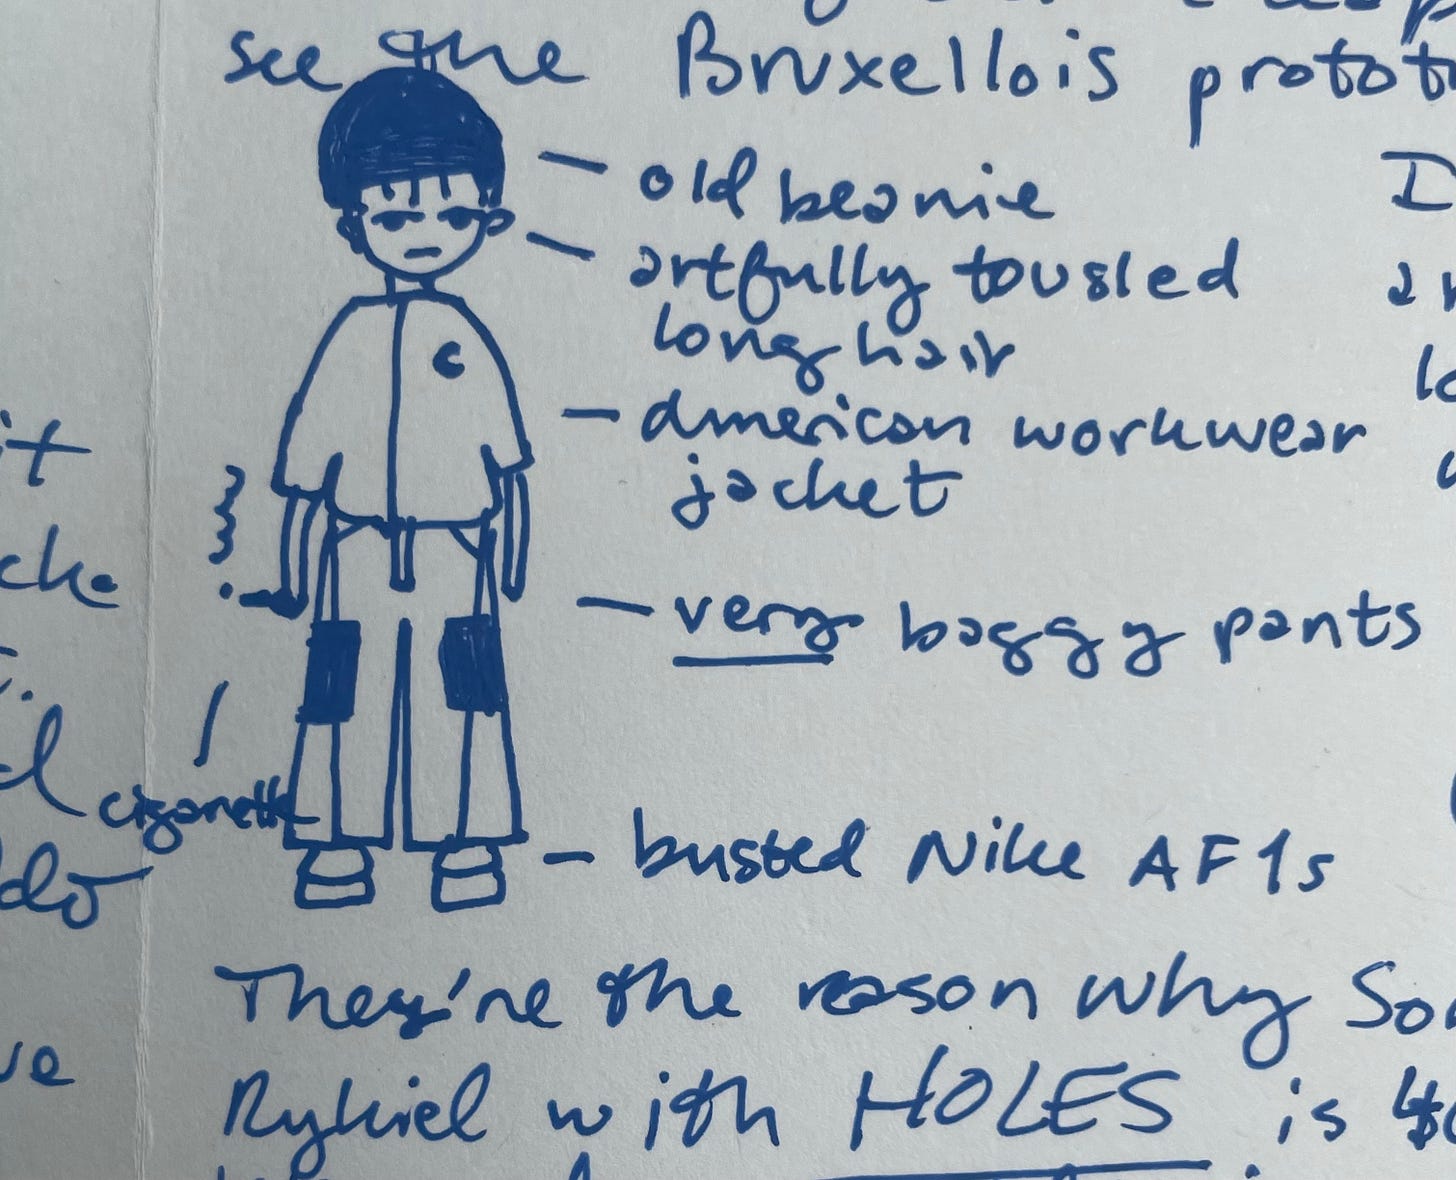 see the Bruxellois
old beanie
artfully tousled
long hair
american workwear
jacket
very baggy pants
cigarette
busted Nike AF1s
They're the reason why
Rykiel with HOLES is